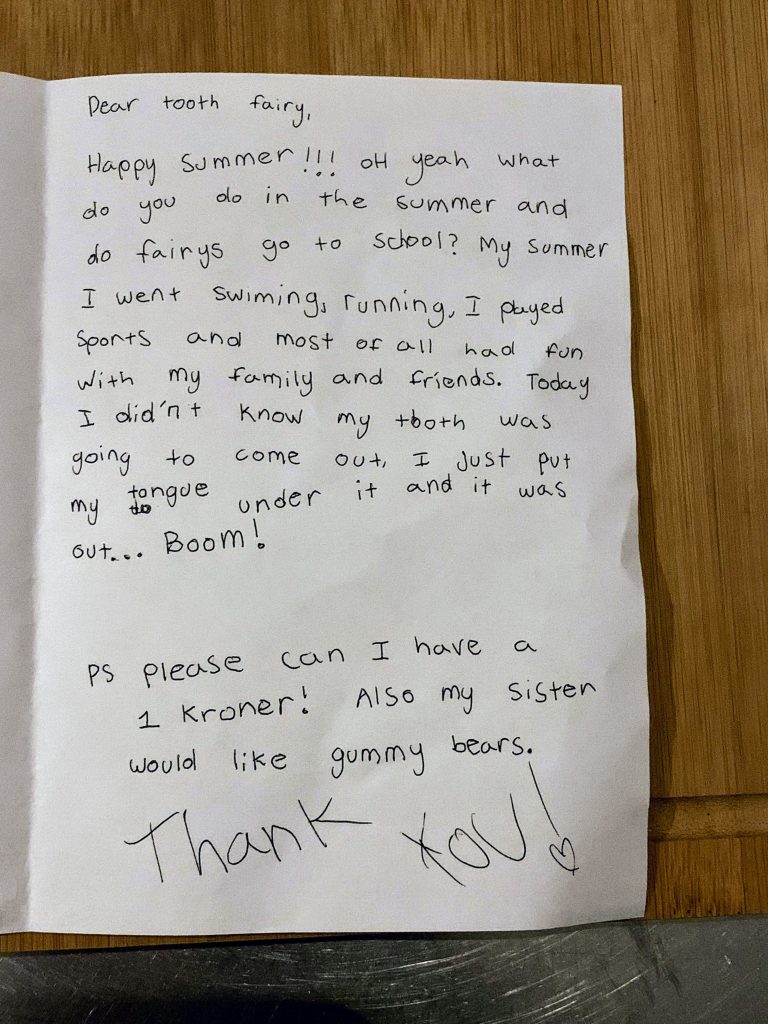 Dear tooth fairy,
Happy Summer!!! oH yeah what
do you do in the summer and
do fairys go to school? My summer
I went swiming, running, I played
sports and most of all had fun
with my family and friends. Today
I didn't know my tooth was
going to come out, I just put
my tongue under it and it was
out... Boom!
PS please can I have a
1 kroner! Also my sister
would like gummy bears.
Thank YOU!